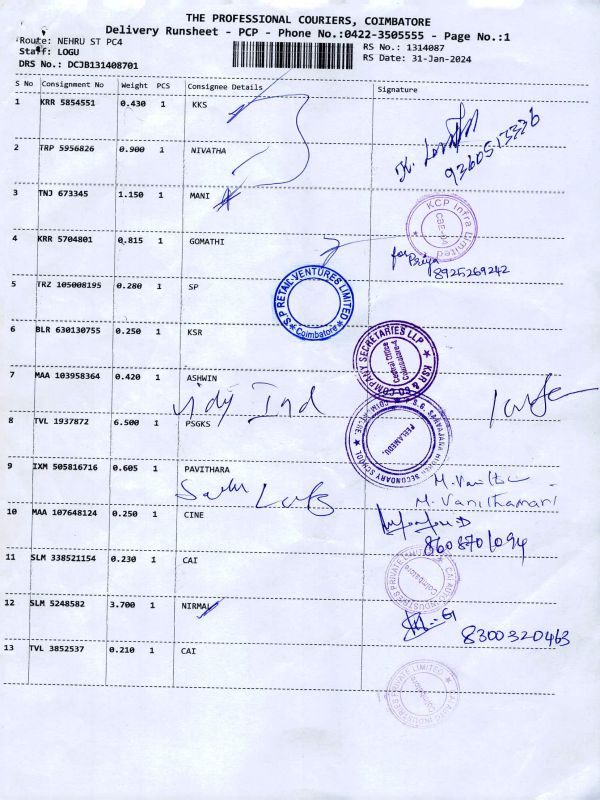 THE PROFESSIONAL COURIERS, COIMBATORE
Delivery Runsheet - PCP - Phone No.:0422-3505555 - Page No.:1
Route: NEHRU ST PC4
RS No.: 1314087
Staff: LOGU
RS Date: 31-Jan-2024
DRS No.: DCJB131408701
S No Consignment No Weight PCS Consignee Details Signature
1 KRR 5854551 0.430 1 KKS
2 TRP 5956826 0.900 1 NIVATHA
9360513326
3 TNJ 673345 1.150 1 MANI
KCP Infra Limited
CBE-04
4 KRR 5704801 0.815 1 GOMATHI
for Priya
8925269242
5 TRZ 105008195 0.280 1 SP
S P RETAIL VENTURES LIMITED
Coimbatore
6 BLR 630130755 0.250 1 KSR
KSR & CO COMPANY SECRETARIES LLP
7 MAA 103958364 0.420 1 ASHWIN
8 TVL 1937872 6.500 1 PSGKS
P.S.G. SARVAJANA HIGHER SECONDARY SCHOOL
PEELAMEDU
9 IXM 505816716 0.605 1 PAVITHARA
M. Vanitha
M. Vanithamani
10 MAA 107648124 0.250 1 CINE
8608701094
11 SLM 338521154 0.230 1 CAI
CAI INDUSTRIES PRIVATE LIMITED
Coimbatore
12 SLM 5248582 3.700 1 NIRMAL
8300320463
13 TVL 3852537 0.210 1 CAI
INDUSTRIES PRIVATE LIMITED